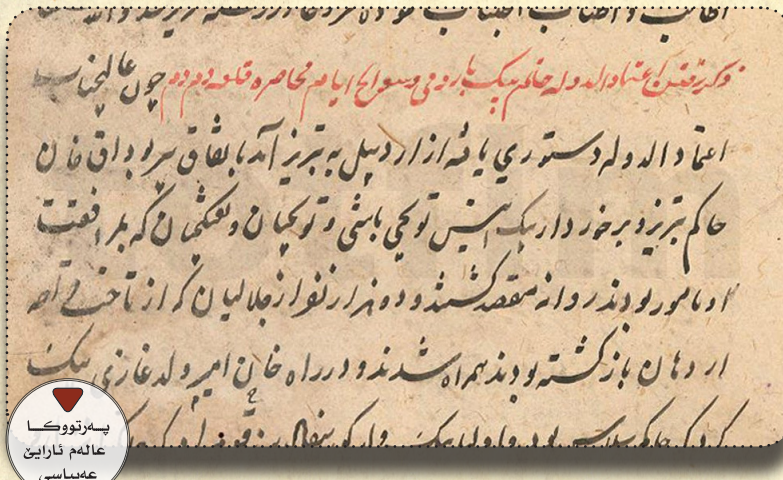 ذکر رفتن اعتماد الدوله حاتم بیک بارومی و سوانح ایام محاصره قلعه دم دم چون عالیجناب
اعتماد الدوله دستوری یافته از اردبیل به تبریز آمد باتفاق پیر بوداق خان
حاکم تبریز و برخوردار بیک انیس توپچی باشی و توپچیان و تفنگچیان که بمرافقت
او مامور بودند روانه مقصد کشتند و ده هزار نفر از جلالیان که از تاخت
اردهان بازکشته بودند همراه شدند و در راه خان امیره ولد غازی بیک
کرد که حاکم سلماس بود
پەرتووکا
عالەم ئارایێ
عەبباسی